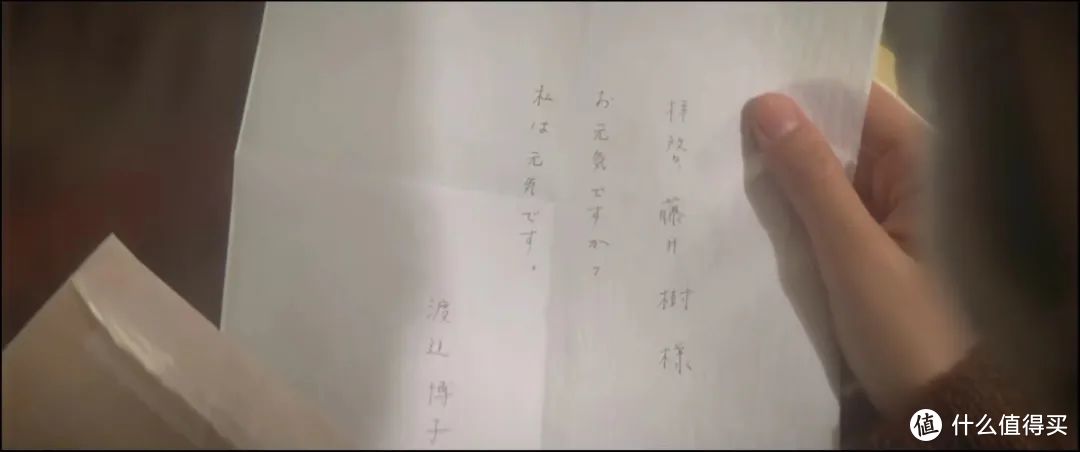 拝啓 藤井 樹 様
お元気ですか?
私は元気です。
渡辺 博子
值 什么值得买